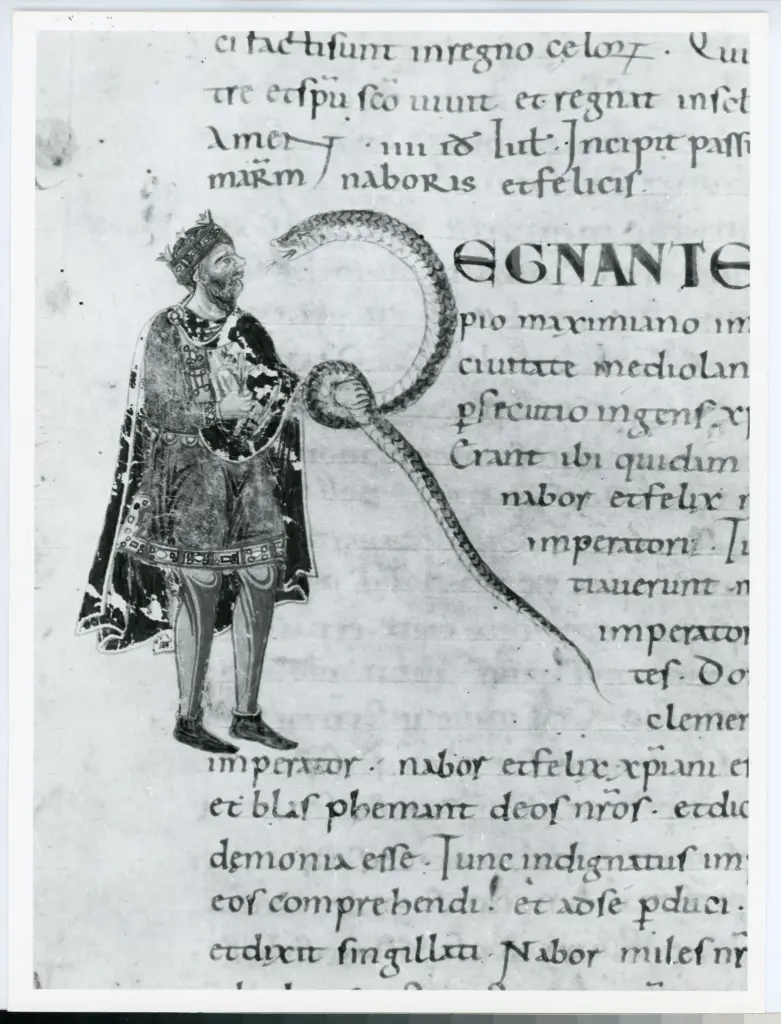 ci factisunt inregno celoꝝ. Qui
tre etspū sc̄o uiuit et regnat insecl
Amen. iiii id Iul. Incipit passi
mar̄m naboris etfelicis.
REGNANTE
pio maximiano im
ciuitate mediolan
p̱secutio ingens xp
Erant ibi quidam
nabor etfelix
imperatori.
tiauerunt
imperator
tes. Do
clemen
imperator. nabor etfelix xp̄iani et
et blasphemant deos nr̄os. etdic
demonia esse. Tunc indignatus im
eos comprehendi. et adse ꝑduci.
etdixit singillati. Nabor miles nr